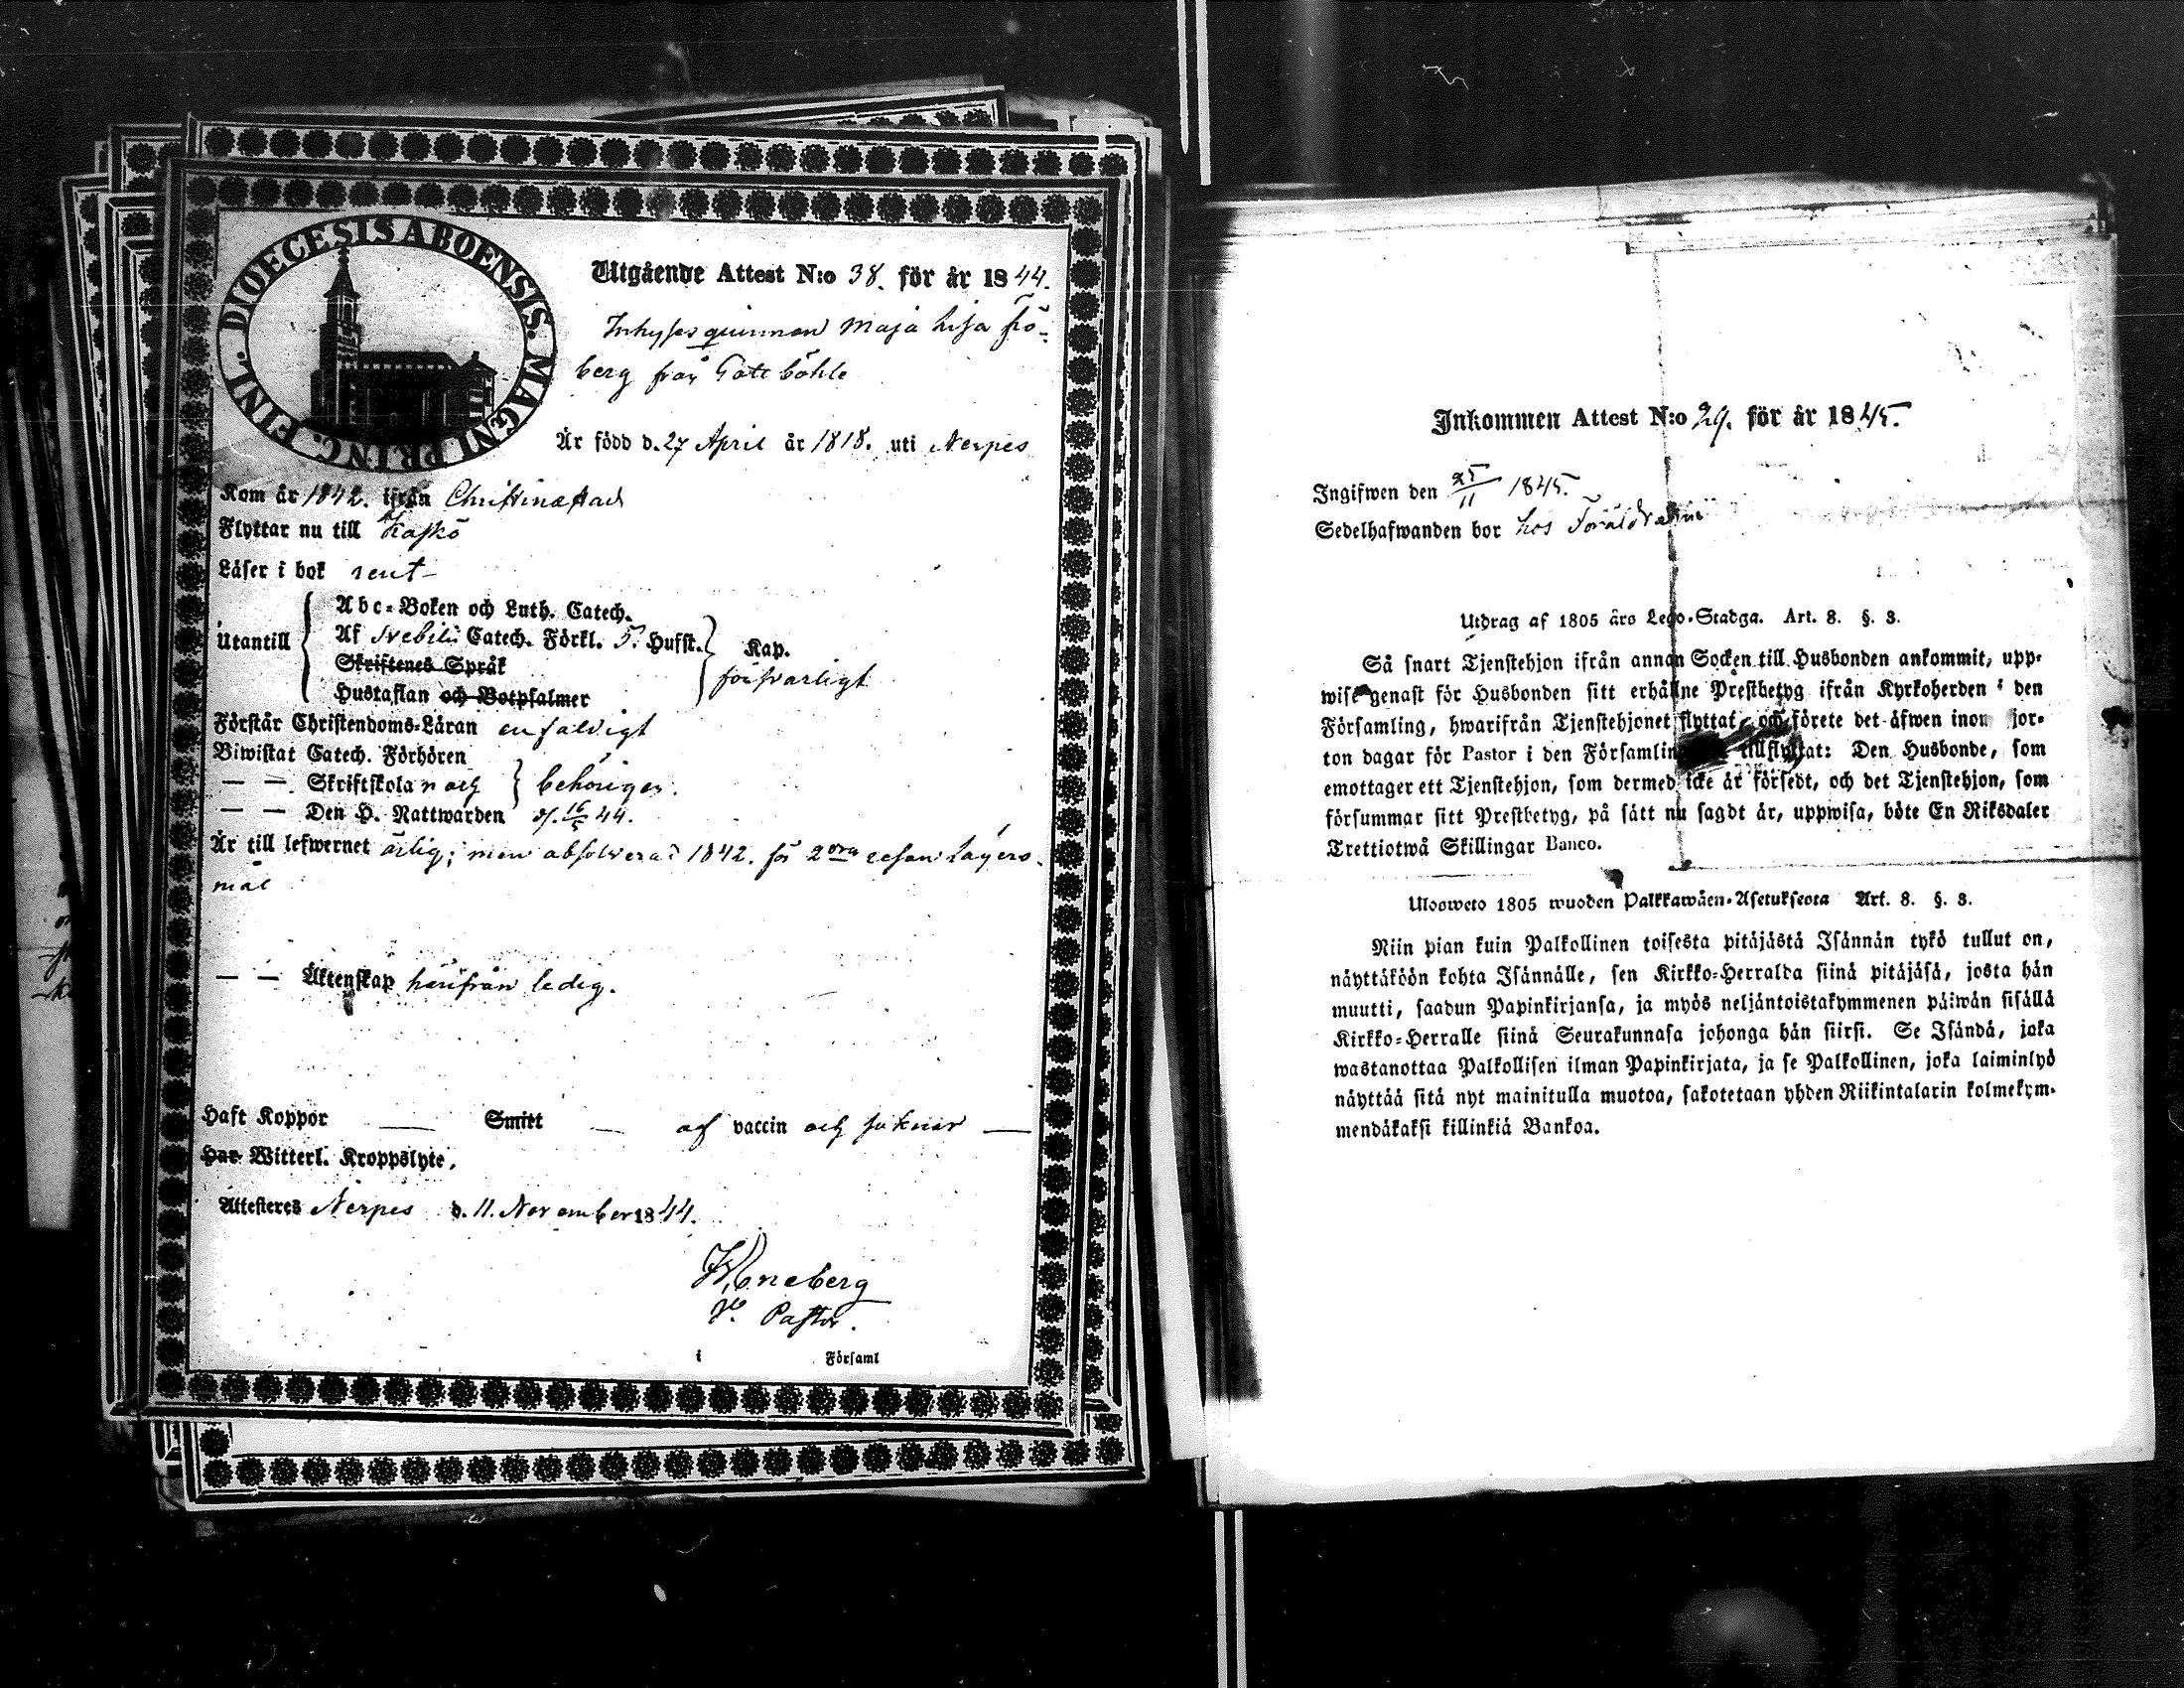 DIOECESIS ABOENSIS. MAGNI PRINC. FINL.
Utgående Attest N:o 38. för år 1844.
Inhyses quinnan Maja Lisa Frö-
berg från Gottböhle
Är född d. 27 April år 1818. uti Nerpes
Kom år 1842. ifrån Christinæstad
Flyttar nu till Kaskö
Läser i bok rent
Utantill
Abc-Boken och Luth. Catech.
Af Svebilii Catech. Förkl. 5. Hufst.
Kap.
Skriftenes Språk
försvarligt
Hustaflan och Botpsalmer
Förstår Christendoms-Läran enfaldigt
Biwistat Catech. Förhören
— — Skriftskolan och
behörigen.
— — Den H. Nattwarden d. 16/5 44.
Är till lefwernet ärlig; men absolverad 1842. för 2dra resan Lägers-
mål
— — Äktenskap härifrån ledig.
Haft Koppor — Smitt — af vaccin och saknar —
Har Witterl. Kroppslyte.
Attesteres Nerpes d. 11. November 1844.
Pastor.
i Församl
Inkommen Attest N:o 29. för år 1845.
Ingifwen den 25/11 1845.
Sedelhafwanden bor hos Föräldrarne
Utdrag af 1805 års Lego-Stadga. Art. 8. §. 3.
Så snart Tjenstehjon ifrån annan Socken till Husbonden ankommit, upp-
wise genast för Husbonden sitt erhållne Prestbetyg ifrån Kyrkoherden i den
Församling, hwarifrån Tjenstehjonet flyttat, och förete det äfwen inom fjor-
ton dagar för Pastor i den Församling tillflyttat: Den Husbonde, som
emottager ett Tjenstehjon, som dermed icke är försedt, och det Tjenstehjon, som
försummar sitt Prestbetyg, på sätt nu sagdt är, uppwisa, böte En Riksdaler
Trettiotwå Skillingar Banco.
Ulosweto 1805 wuoden Palkkawäen-Asetuksesta Art. 8. §. 3.
Niin pian kuin Palkollinen toisesta pitäjästä Isännän tykö tullut on,
näyttäköön kohta Isännälle, sen Kirkko-Herralda siinä pitäjäsä, josta hän
muutti, saadun Papinkirjansa, ja myös neljäntoistakymmenen päiwän sisällä
Kirkko-Herralle siinä Seurakunnasa johonga hän siirsi. Se Isändä, joka
wastanottaa Palkollisen ilman Papinkirjata, ja se Palkollinen, joka laiminlyö
näyttää sitä nyt mainitulla muotoa, sakotetaan yhden Riikintalarin kolmekym-
mendäkaksi killinkiä Bankoa.